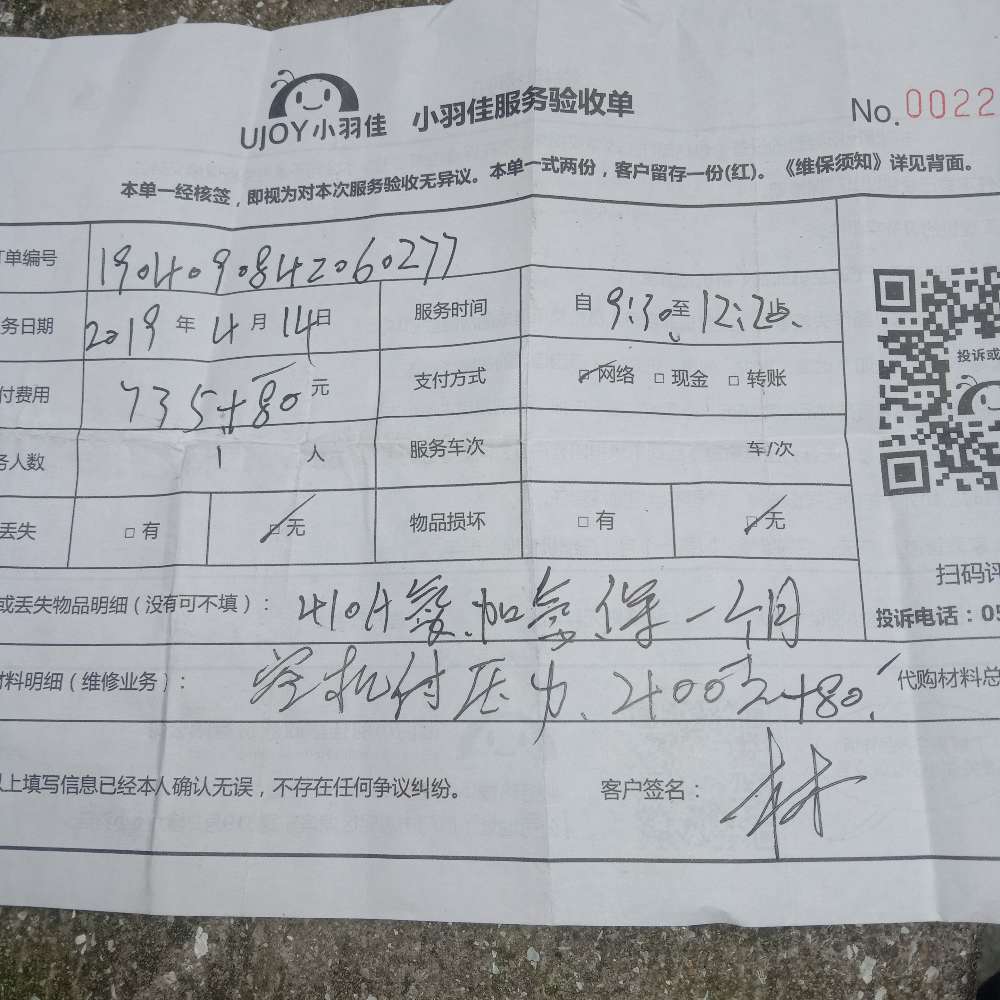 UJOY小羽佳 小羽佳服务验收单 No.0022
本单一经核签，即视为对本次服务验收无异议。本单一式两份，客户留存一份(红)。《维保须知》详见背面。
订单编号 1904090842060277
务日期 2019年4月14日 服务时间 自9:30至12:20
付费用 735+80元 支付方式 网络 现金 转账
投诉或
务人数 1人 服务车次 车/次
丢失 有 无 物品损坏 有 无
扫码评
或丢失物品明细（没有可不填）： 410A 氟.加氟.保一个月
投诉电话：05
材料明细（维修业务）： 空机付压力、2400元+80.
代购材料总
以上填写信息已经本人确认无误，不存在任何争议纠纷。 客户签名： 林